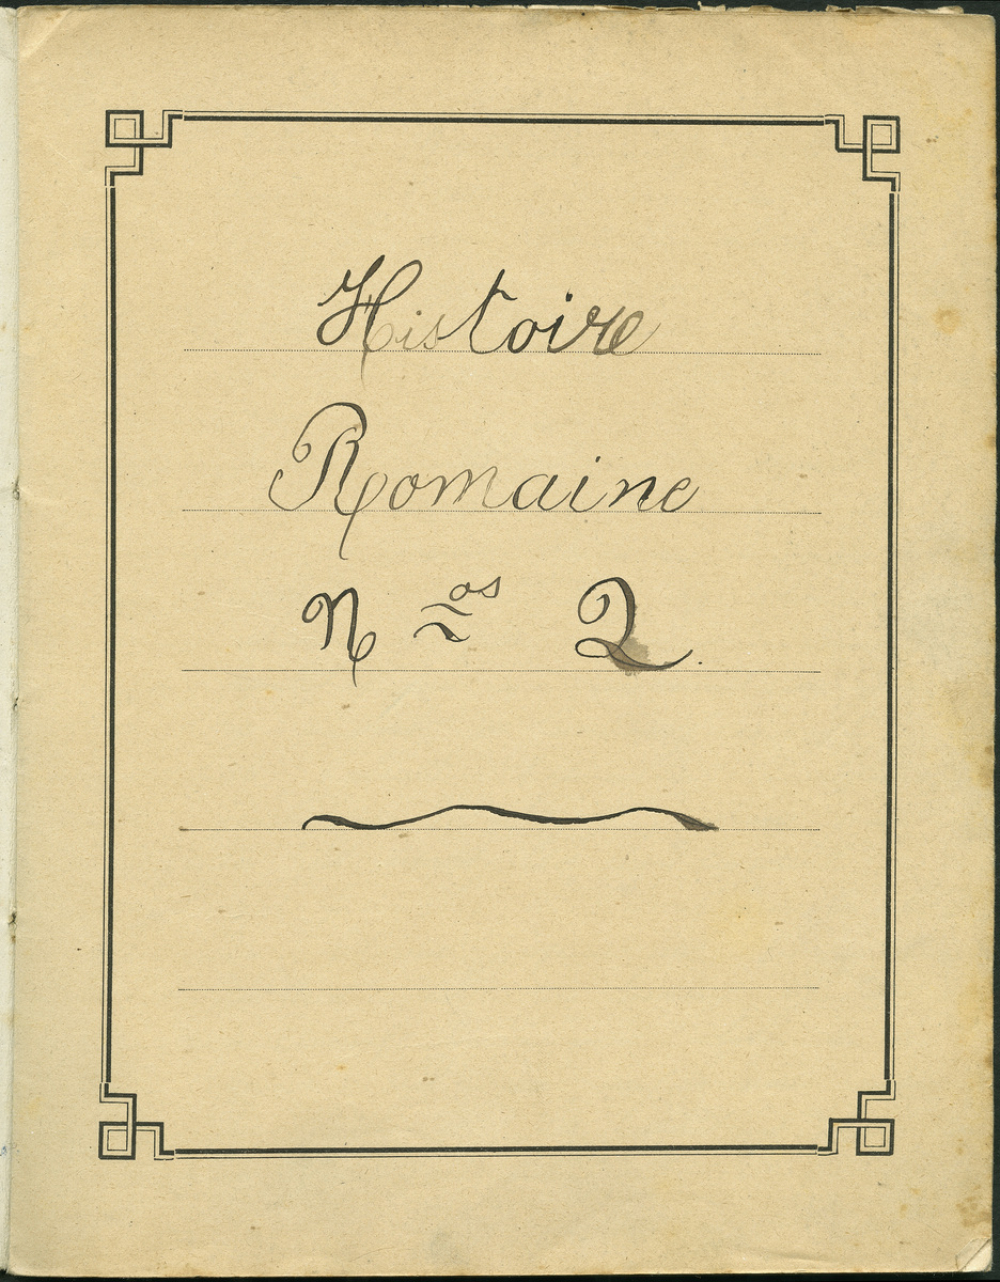 Histoire
Romaine
N os 2.